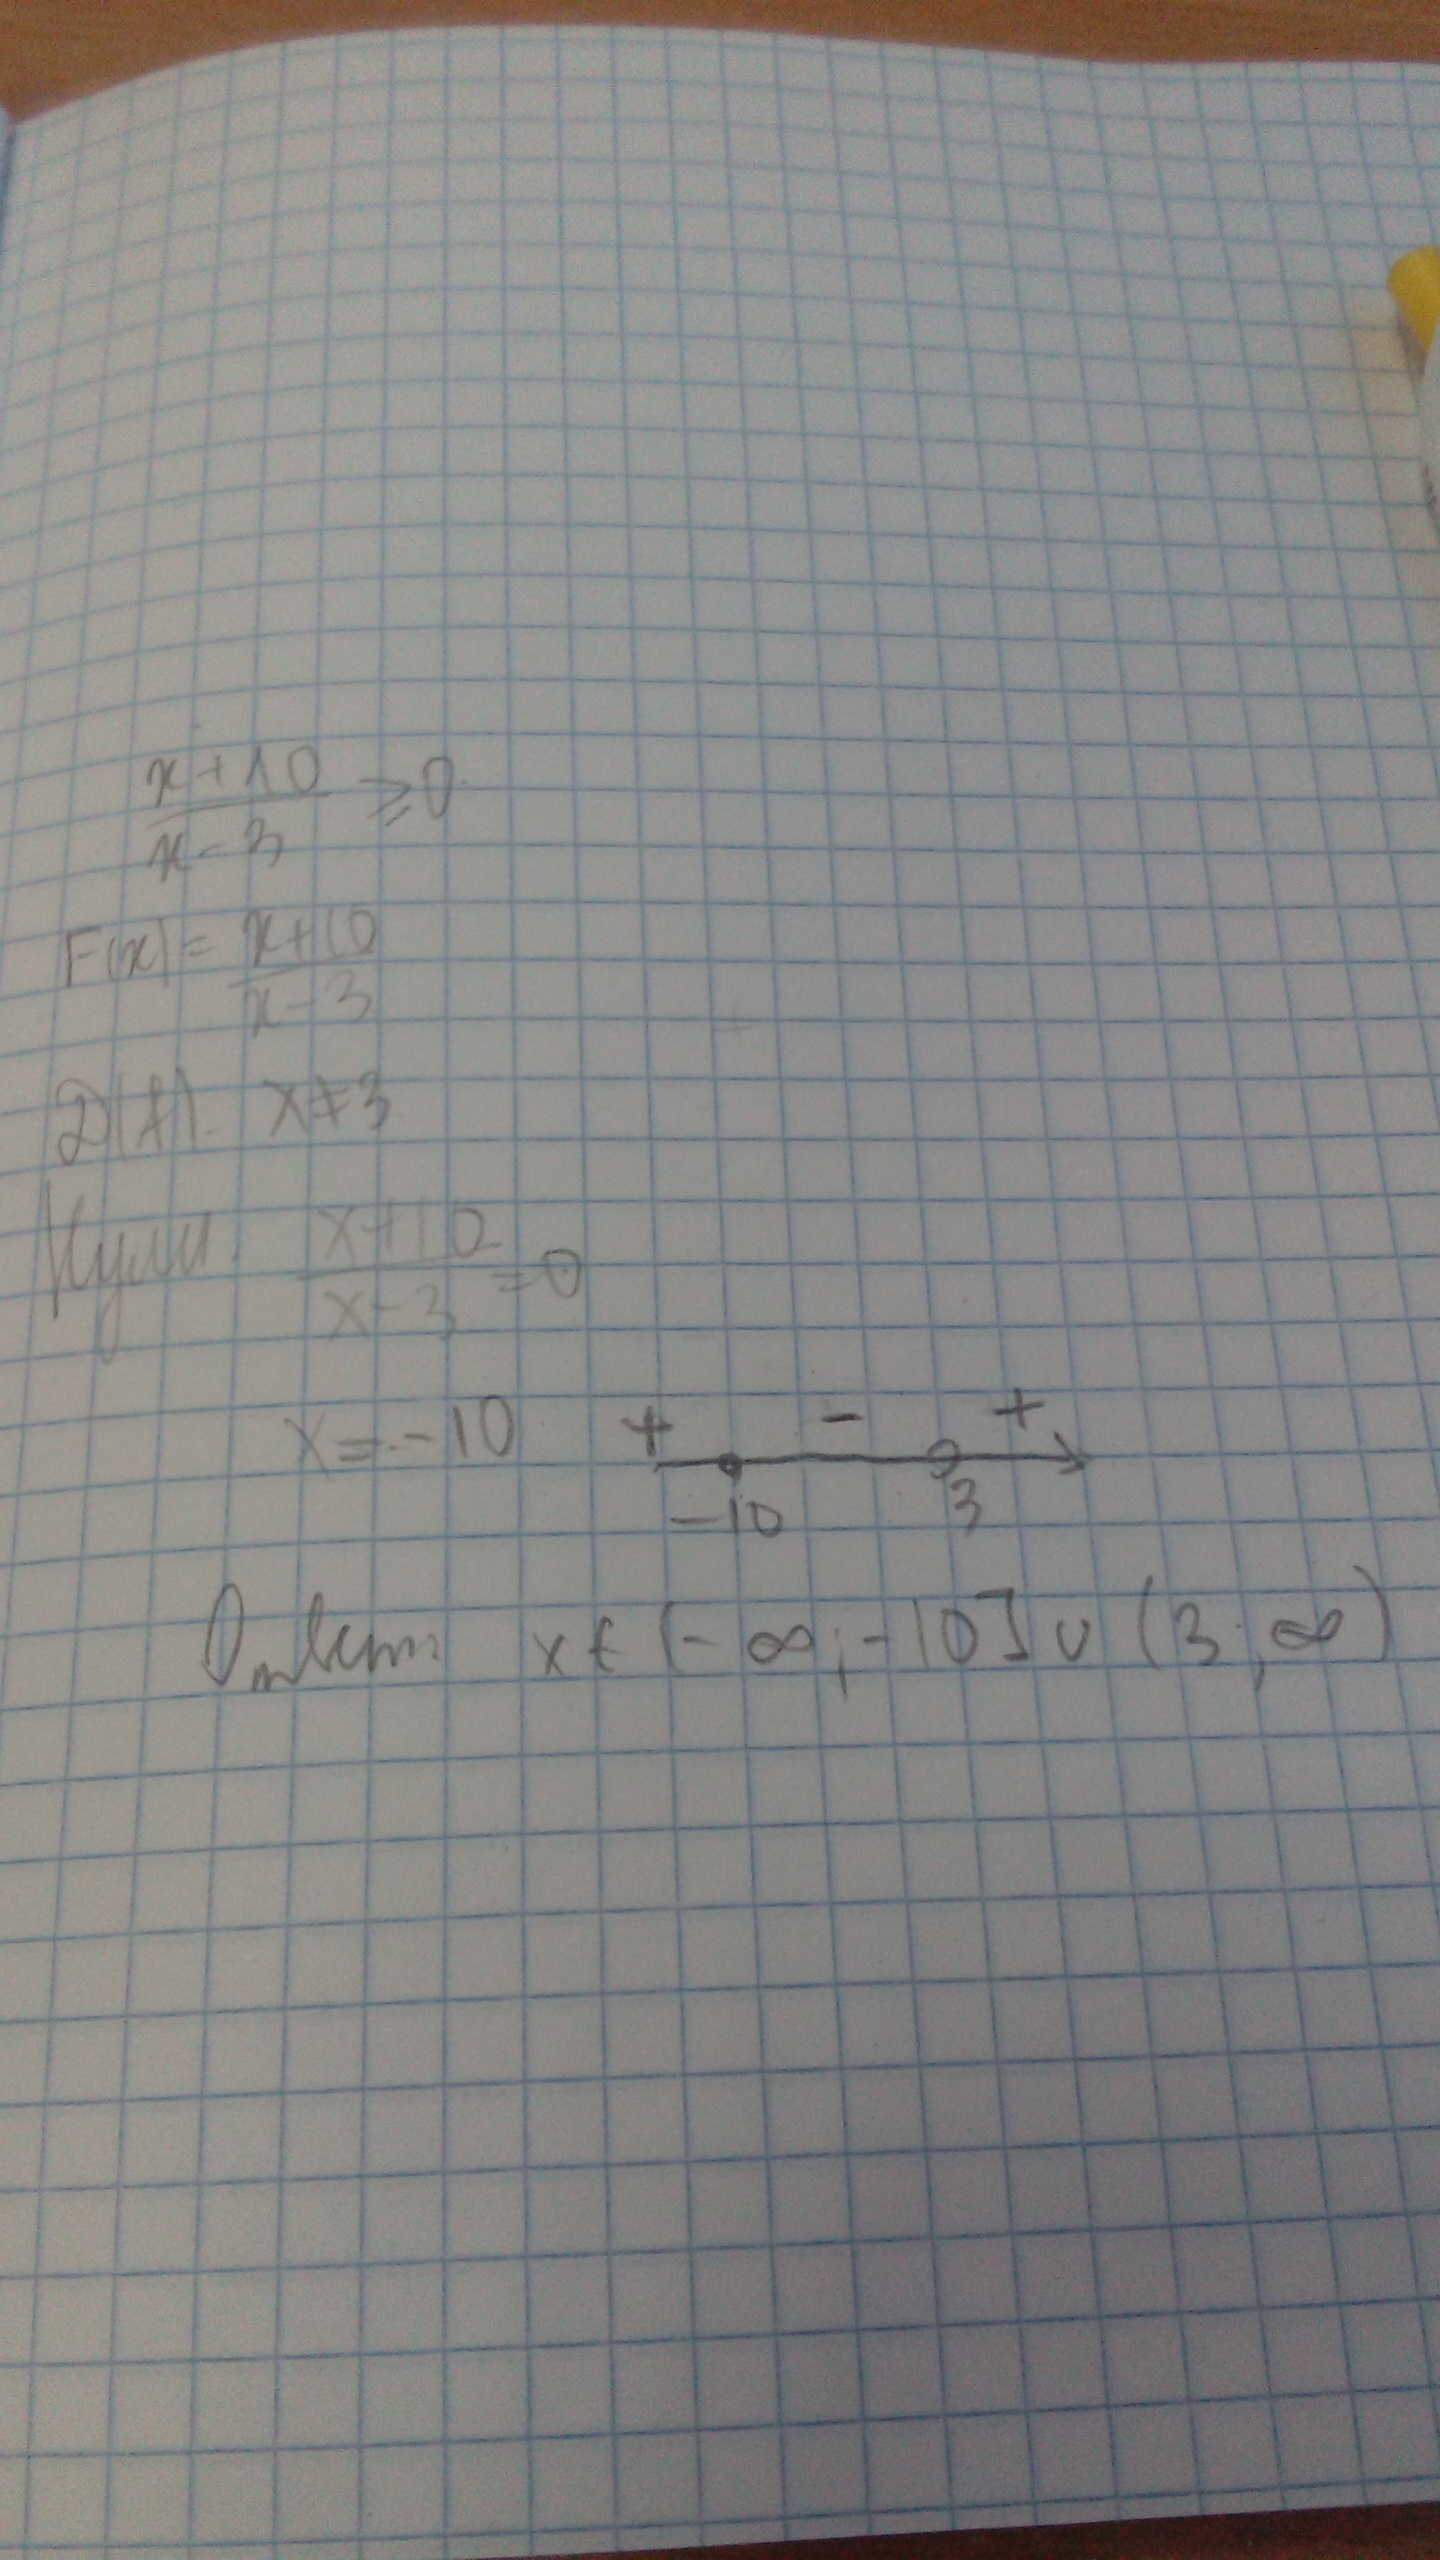 x+10
x-3 ≥0
F(x)= x+10
x-3
D(f). x≠3
Нули. x+10
x-3 =0
x=-10 + - +
-10 3
Ответ: x∈(-∞;-10]∪(3;∞)